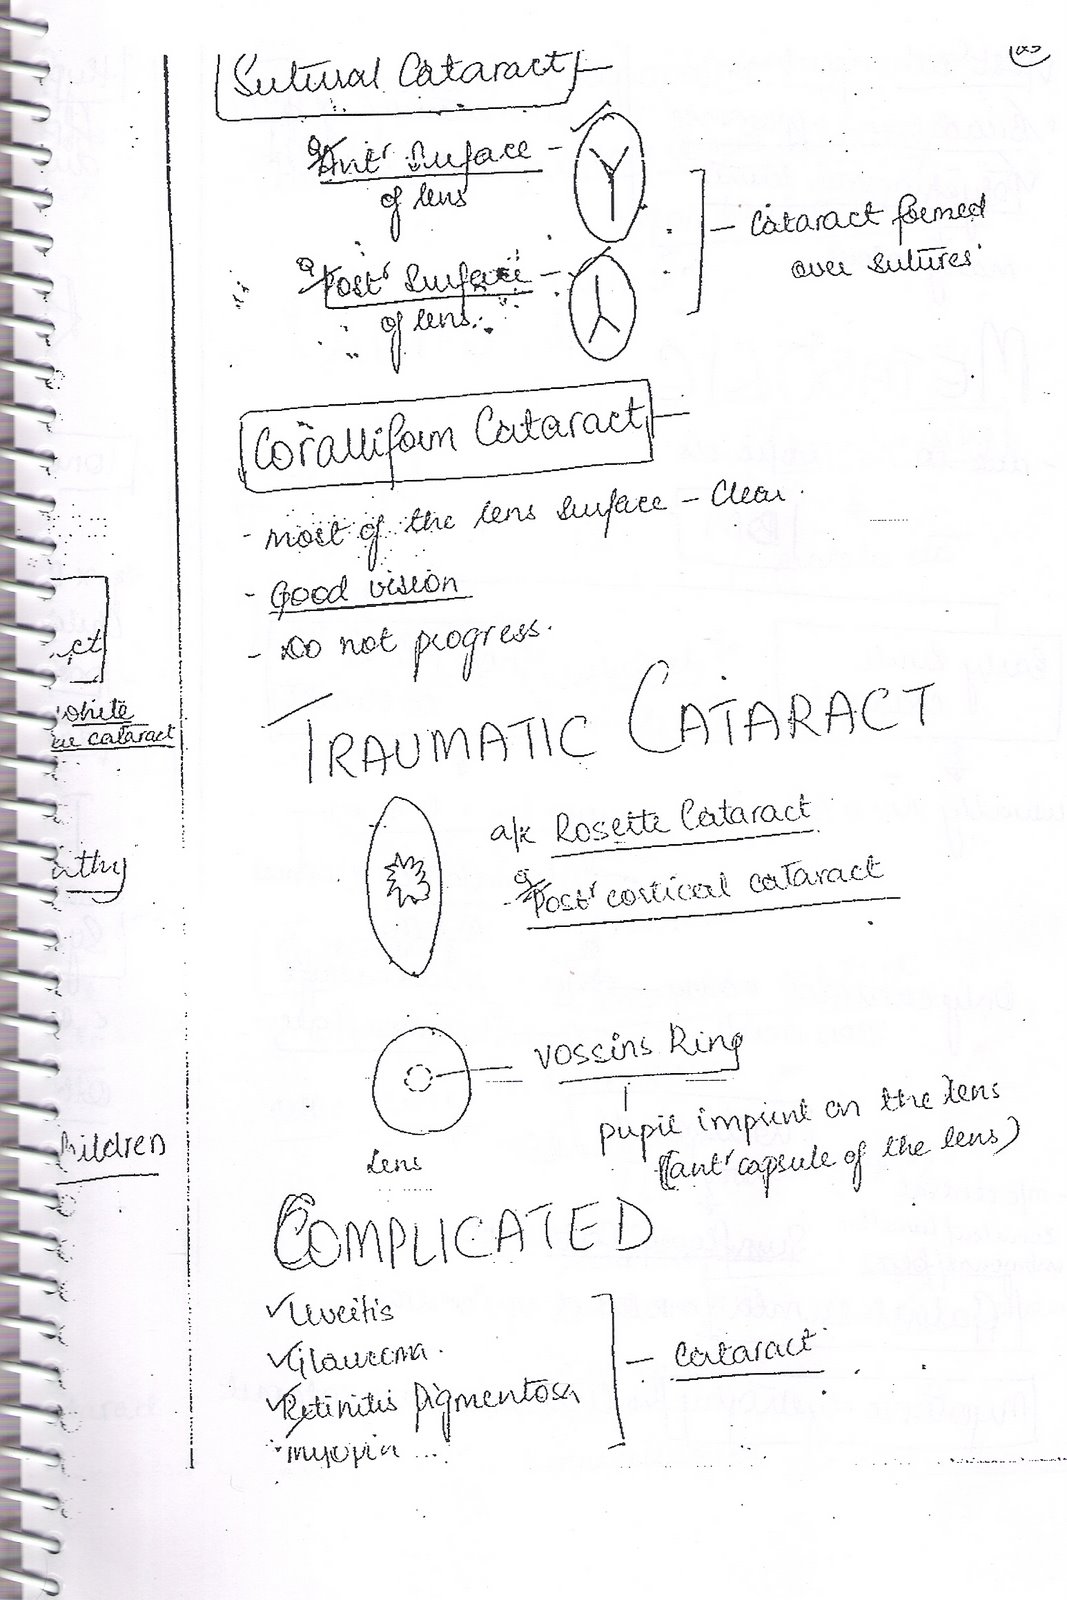 Sutural Cataract
Q Ant^r Surface -
of lens
Cataract formed
over sutures
Q Post^r Surface -
of lens
Coralliform Cataract
- most of the lens surface - Clear.
- Good vision
- Do not progress.
ct
white
cataract
TRAUMATIC CATARACT
a/k Rosette Cataract
Q
- Post^r cortical cataract
Vossius Ring
pupil imprint on the lens
(ant^r capsule of the lens)
Lens
hildren
COMPLICATED
✓ Uveitis
✓ Glaucoma.
✓ Retinitis Pigmentosa
myopia ...
- cataract